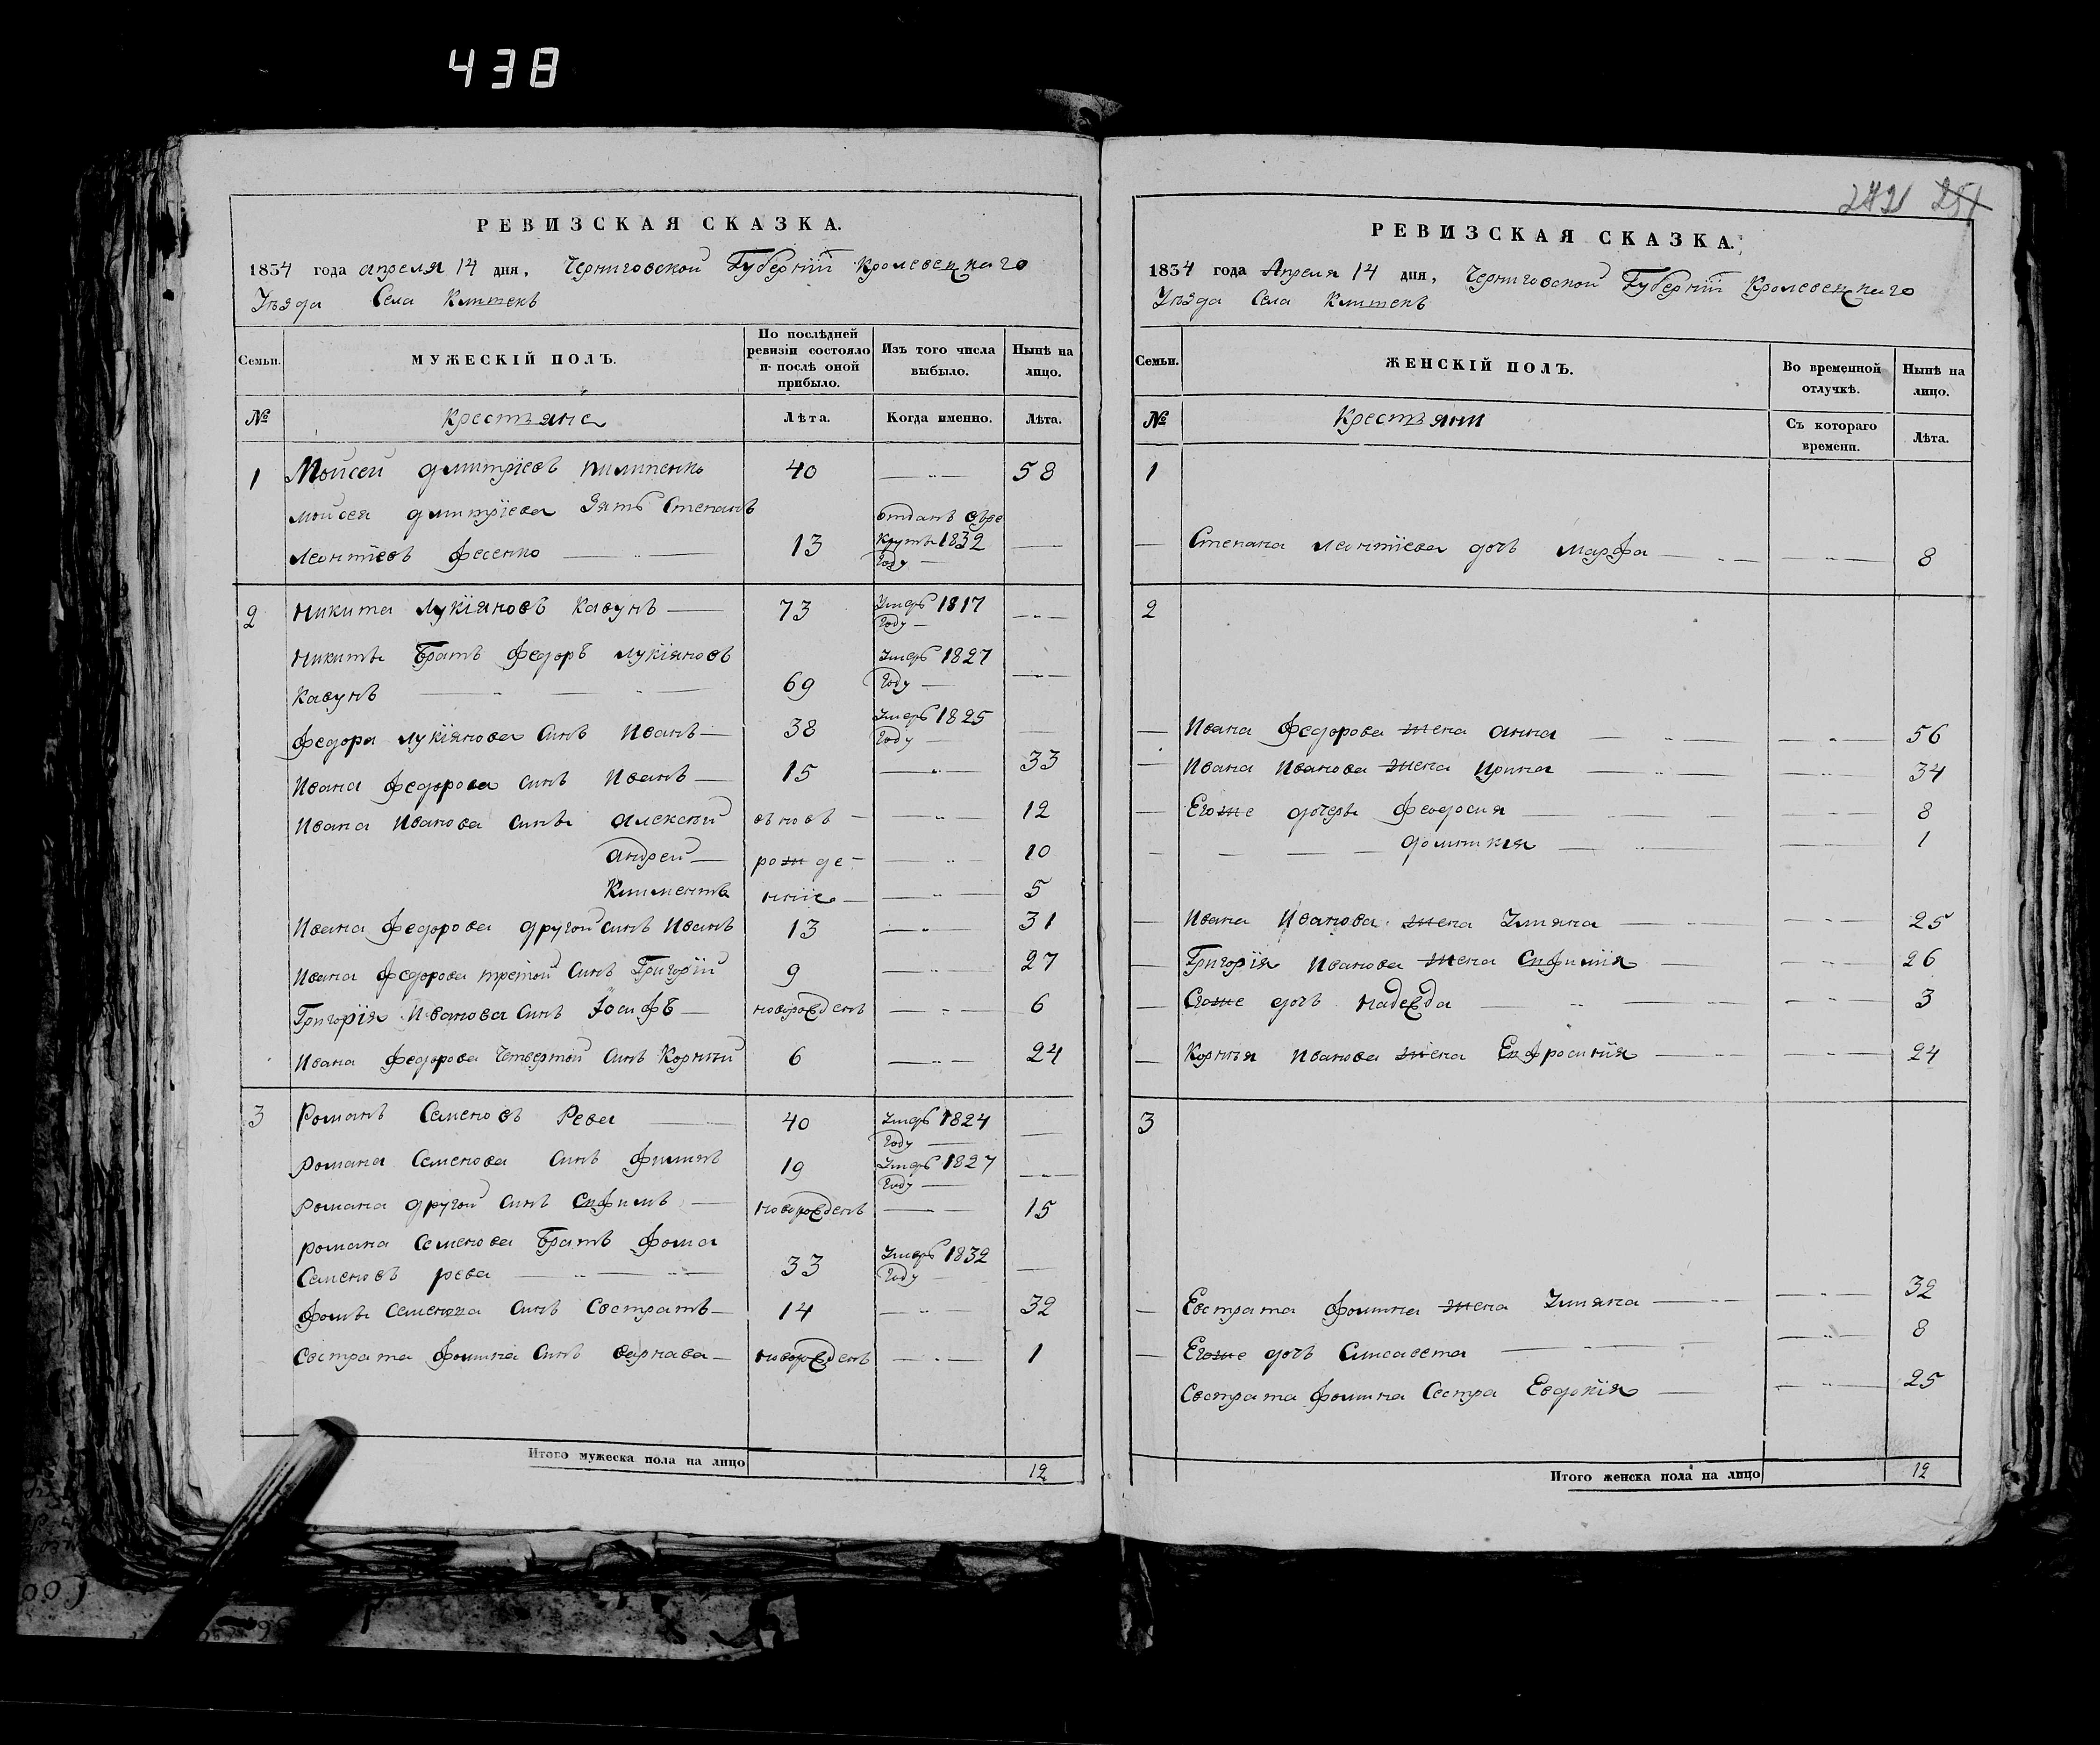 438
РЕВИЗСКАЯ СКАЗКА.
1834 года апреля 14 дня, Черниговской Губернїи Кролевецкаго
Уѣзда Села Клишекъ
Семьи.
МУЖЕСКІЙ ПОЛЪ.
По послѣдней ревизіи состояло и послѣ оной прибыло.
Изъ того числа выбыло.
Нынѣ на лицо.
№ Крестьяне Лѣта. Когда именно. Лѣта.
1 Мойсей Дмитрїевъ Пилипенко 40 58
Мойсея Дмитрїева Зять Степанъ
Леонтїевъ Фесенко 13 отданъ въре крутъ 1832 Году
2 Никита Лукїяновъ Кавунъ 73 Умеръ 1817 Году
Никиты Братъ Федоръ Лукїяновъ
Кавунъ 69 Умеръ 1827 Году
Федора Лукїянова Синъ Иванъ 38 Умеръ 1825 Году
Ивана Федорова Синъ Иванъ 15 33
Ивана Иванова Сины Алексѣй вновъ 12
Андрей рожде- 10
Климентъ ннїе 5
Ивана Федорова другой Синъ Иванъ 13 31
Ивана Федорова третой Синъ Григорїй 9 27
Григорїя Иванова Синъ Іосифъ новорожденъ 6
Ивана Федорова Четвертой Синъ Корнѣй 6 24
3 Романъ Семеновъ Рева 40 Умеръ 1824 Году
Романа Семенова Синъ Филипъ 19 Умеръ 1827 Году
Романа другой Синъ Евфимъ новорожденъ 15
Романа Семенова Братъ Фома
Семеновъ Рева 33 Умеръ 1832 Году
Фомы Семенова Синъ Евстратъ 14 32
Евстрата Фомина Синъ Варнава новорожденъ 1
Итого мужеска пола на лицо 12
РЕВИЗСКАЯ СКАЗКА.
1834 года Апреля 14 дня, Черниговской Губернїи Кролевецкаго
Уѣзда Села Клишекъ
Семьи.
ЖЕНСКІЙ ПОЛЪ.
Во временной отлучкѣ.
Нынѣ на лицо.
№ Крестьяни Съ котораго времени. Лѣта.
1
Степана Леонтїева дочь Марфа 8
2
Ивана Федорова жена Анна 56
Ивана Иванова жена Ирина 34
Егоже дочеры Феодосия 8
Домникия 1
Ивана Иванова жена Улияна 25
Григорїя Иванова жена Евфимїя 26
Егоже дочь Надежда 3
Корнѣя Иванова жена Евфросинїя 24
3
Евстрата Фомина жена Улияна 32
Егоже дочь Елисавета 8
Евстрата Фомина Сестра Евдокїя 25
Итого женска пола на лицо 12